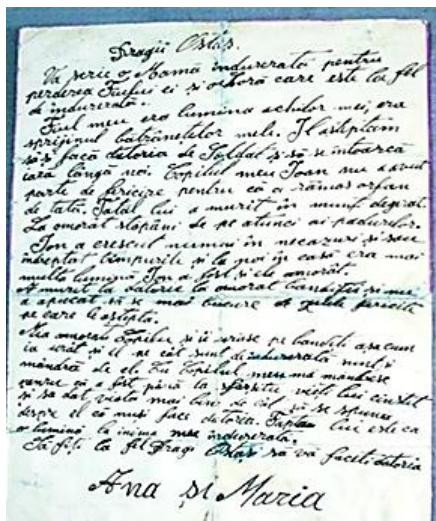 Dragii Ostaș.
Vă scrie o Mamă îndurerată pentru
perderea Fiului ei și o soră care este la fel
de îndurerată.
Fiul meu era lumina ochilor mei, era
sprijinul bătrânețelor mele. Îl aștiptam
să-și facă datoria de Soldat și să se întoarcă
iară lângă noi. Copilul meu Ioan nu a avut
parte de fericire pentru că a rămas orfan
de tată. Tatăl lui a murit în munți degirat.
La omorât stăpâni de pe atunci ai pădurilor.
Ion a crescut numai în necazuri și sau
îndreptat timpurile și la noi în casă era mai
multă lumină. Ion a fost și el omorât.
A murit la datorie la omorât bandiții și nu
a apucat să se mai bucure de zilele fericite
pe care le aștepta.
Mia omorât Copilu și îi urăsc pe bandiți așa cum
ia urât și el pe cât sunt de îndurerată sunt și
mândră de el. Cu Copilul meu mă mândresc
pentru că a fost până la sfârșitu vieți lui cinstit
și sa dat viața mai bine de cât să se spună
despre el că nuși face datoria. Faptau lui este ca
o lumină la inima mea îndurerată.
Să fiți la fel Dragi Ostaș să vă faceți datoria
Ana și Maria